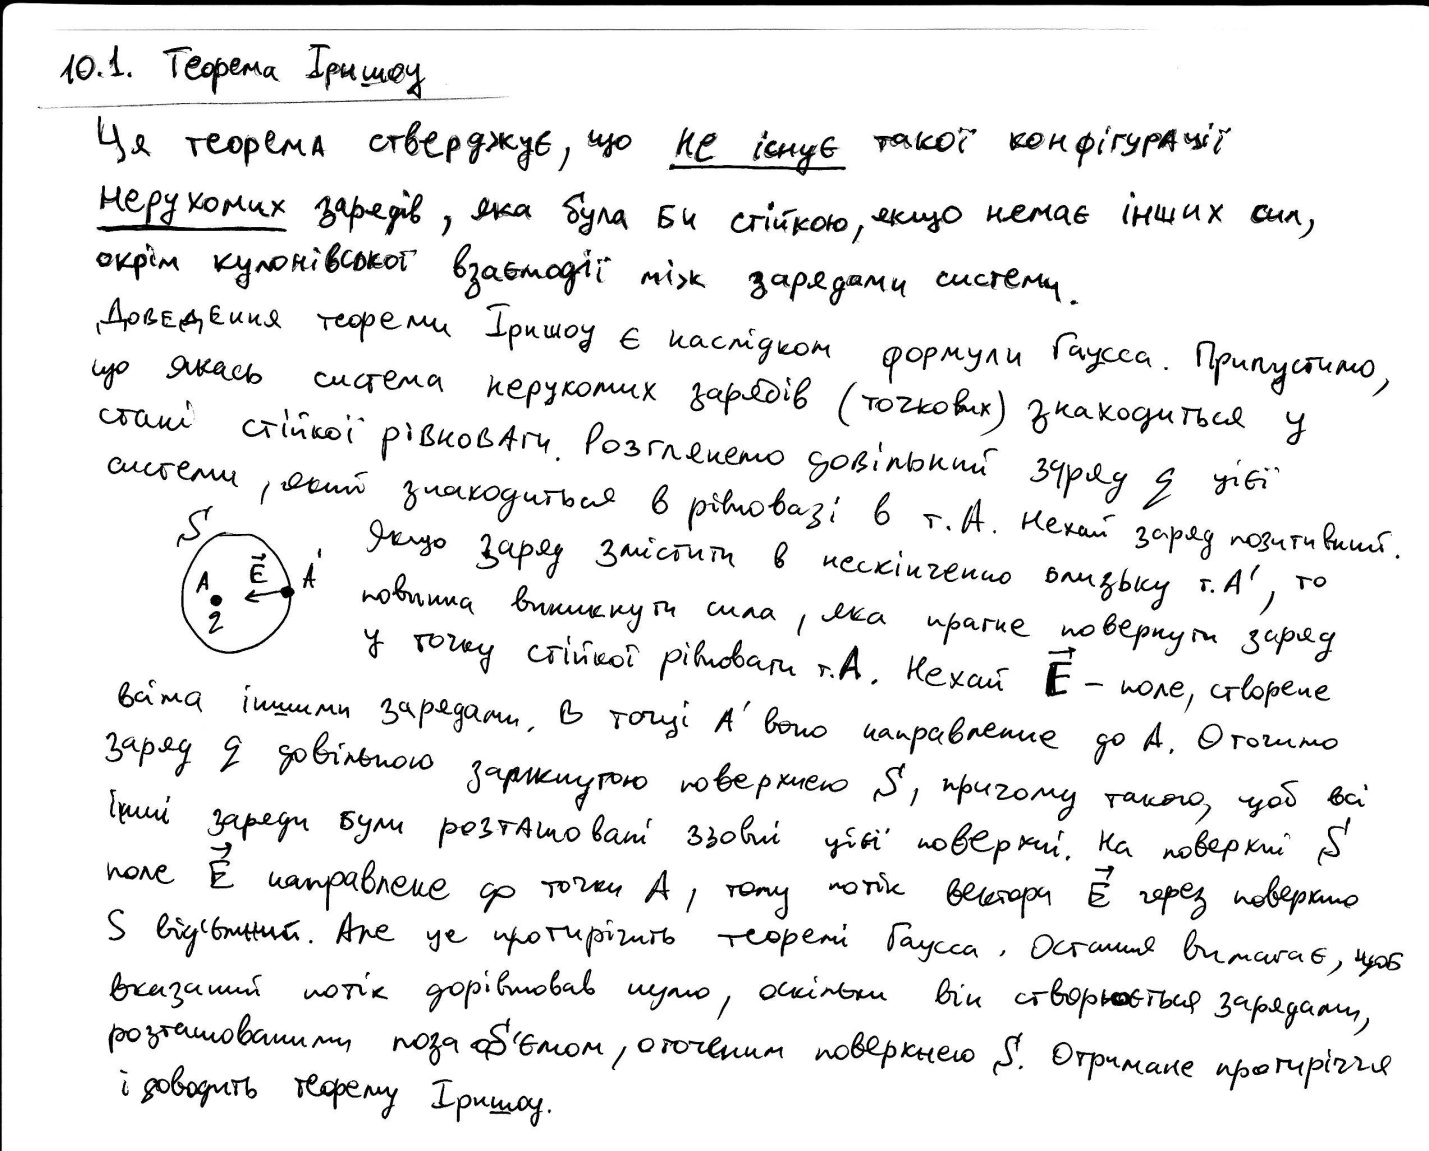 10.1. Теорема Ірншоу
Ця теорема стверджує, що не існує такої конфігурації
нерухомих зарядів, яка була би стійкою, якщо немає інших сил,
окрім кулонівської взаємодії між зарядами системи.
Доведення теореми Ірншоу є наслідком формули Гаусса. Припустимо,
що якась система нерухомих зарядів (точкових) знаходиться у
стані стійкої рівноваги. Розглянемо довільний заряд q цієї
системи, який знаходиться в рівновазі в т. А. Нехай заряд позитивний.
Якщо заряд змістити в нескінченно близьку т. А', то
повинна виникнути сила, яка прагне повернути заряд
у точку стійкої рівноваги т. А. Нехай E⃗ – поле, створене
S
A
E⃗
A'
q
всіма іншими зарядами. В точці А' воно направленне до А. Оточимо
заряд q довільною замкнутою поверхнею S, причому такою, щоб всі
інші заряди були розташовані ззовні цієї поверхні. На поверхні S
поле E⃗ направлене до точки А, тому потік вектора E⃗ через поверхню
S від'ємний. Але це протирічить теоремі Гаусса. Остання вимагає, щоб
вказаний потік дорівнював нулю, оскільки він створюється зарядами,
розташованими поза об'ємом, оточеним поверхнею S. Отримане протиріччя
і доводить теорему Ірншоу.